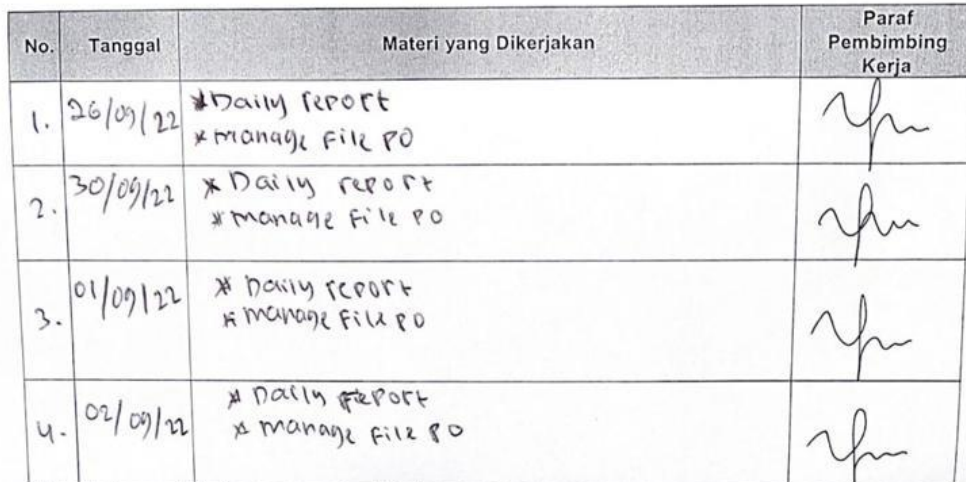 No. Tanggal Materi yang Dikerjakan Paraf Pembimbing Kerja
1. 26/09/22 * Daily report
* manage File PO
2. 30/09/22 * Daily report
* manage File PO
3. 01/09/22 * Daily report
* manage File PO
4. 02/09/22 * Daily report
* manage File PO